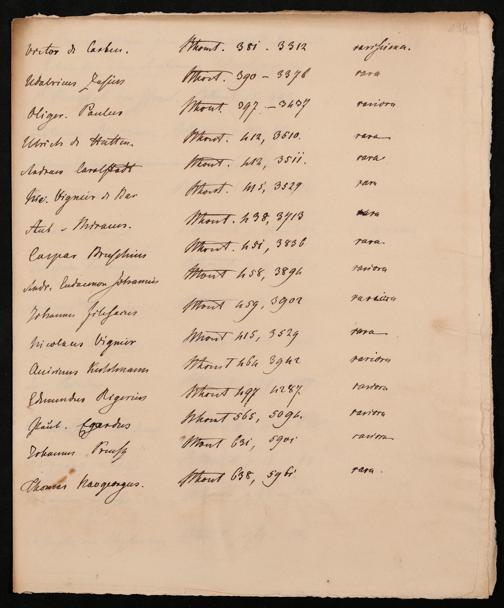 Victor de Carben. Thout. 381. 3312 rarissima.
Udalricus Zasius Thout. 390 - 3376 rara
Oliger. Paulus Thout. 397. - 3437 rariora
Ulrich de Hutten. Thout. 412, 3510. rara
Andreas Carolstadt Thout. 412, 3511. rara
Nic. Vignier de Bar Thout. 415, 3529 rara
Aub. Miraeus. Thout. 438, 3713 rara
Caspar Bruschius Thout. 451, 3836 rara.
Andr. Eudaemon Johannes Thout 458, 3894 rariora
Johannes Filesacus Thout 459, 3902 rariora
Nicolaus Vignier Thout 415, 3529 rara
Quirinus Kuhlmann Thout 464 3942 rariora
Edmundus Rigerius Thout 497 4287. rariora
Paul. Egardus Thout 565, 5094. rariora
Johannes Preuss Thout 631, 5901 rariora
Thomas Naogeorgus. Thout 638, 5961 rara.